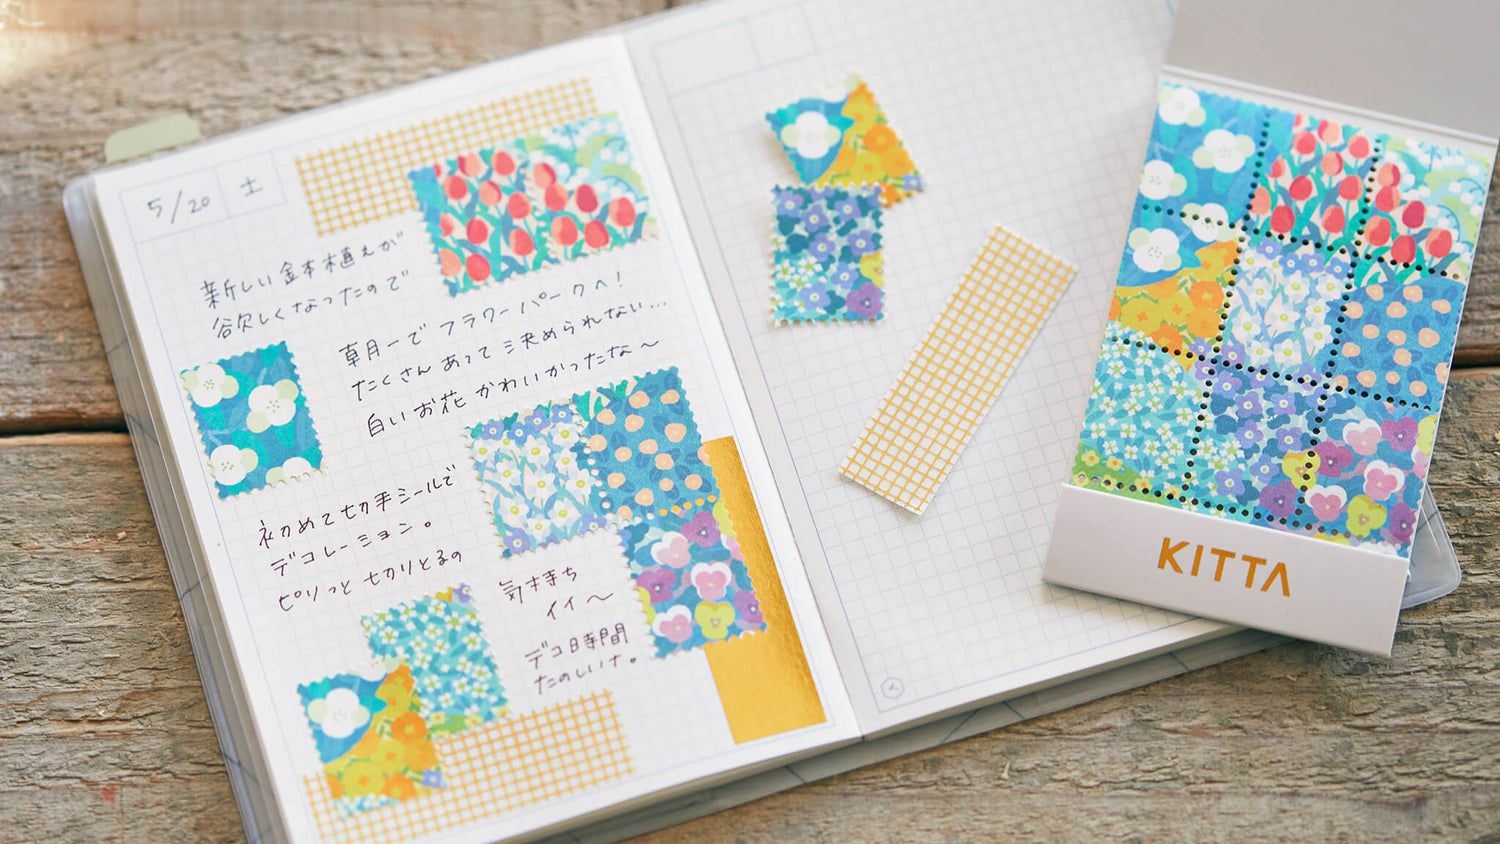 5/20 土
新しい鉢植えが
欲しくなったので
朝一でフラワーパークへ!
たくさんあって決められない…
白いお花かわいかったな〜
初めて切手シールで
デコレーション。
ピリっと切りとるの
気持ち
イイ〜
デコ時間
たのしいナ。
KITTA